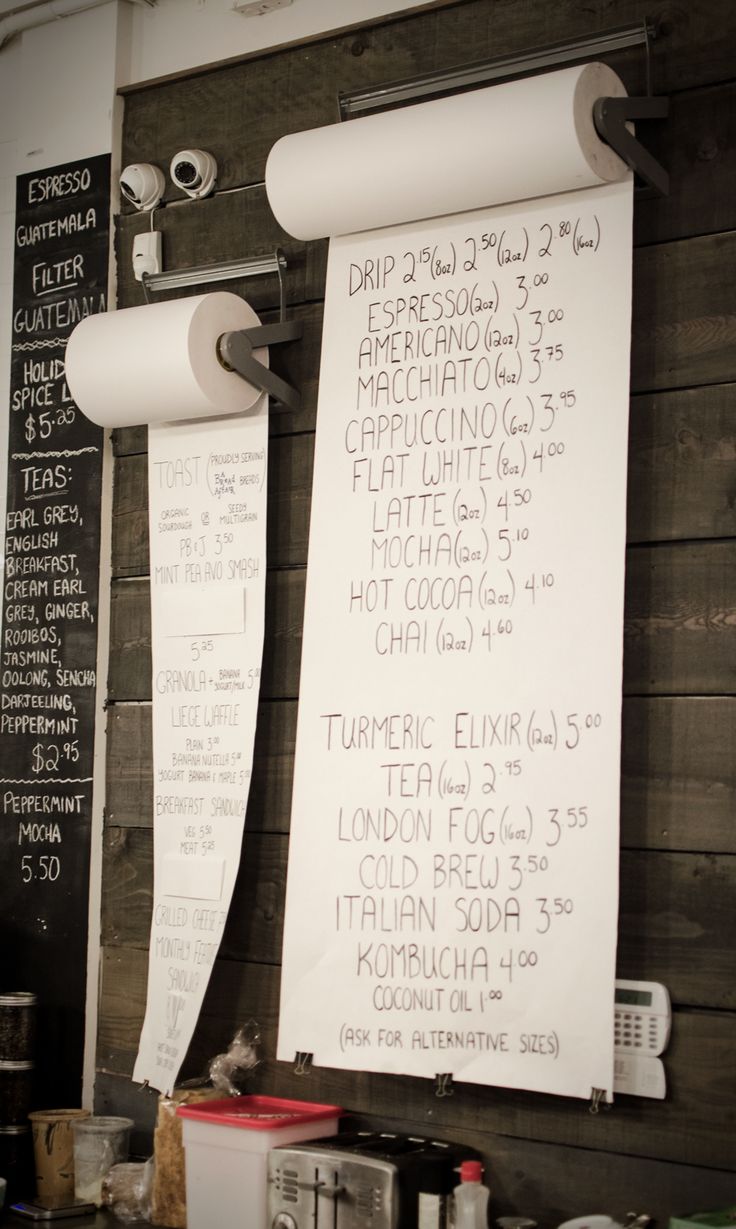 ESPRESSO
GUATEMALA
FILTER
GUATEMA
HOLID
SPICE L
$5.25
TEAS:
EARL GREY,
ENGLISH
BREAKFAST,
CREAM EARL
GREY, GINGER,
ROOIBOS,
JASMINE,
OOLONG, SENCHA
DARJEELING,
PEPPERMINT
$2.95
PEPPERMINT
MOCHA
5.50
TOAST (PROUDLY SERVING
A BREAD AFFAIR BREADS)
ORGANIC SOURDOUGH OR SEEDY MULTIGRAIN
PB&J 3.50
MINT PEA AVO SMASH
5.25
GRANOLA + BANANA YOGURT/MILK 5.00
LIEGE WAFFLE
PLAIN 3.00
BANANA NUTELLA 5.00
YOGURT BANANA & MAPLE 5.00
BREAKFAST SANDWICH
VEG 5.50
MEAT 5.25
GRILLED CHEESE
MONTHLY
SANDWICH
DRIP 2.15 (8oz) 2.50 (12oz) 2.80 (16oz)
ESPRESSO (2oz) 3.00
AMERICANO (12oz) 3.00
MACCHIATO (4oz) 3.75
CAPPUCCINO (6oz) 3.95
FLAT WHITE (8oz) 4.00
LATTE (12oz) 4.50
MOCHA (12oz) 5.10
HOT COCOA (12oz) 4.10
CHAI (12oz) 4.60
TURMERIC ELIXIR (12oz) 5.00
TEA (16oz) 2.95
LONDON FOG (16oz) 3.55
COLD BREW 3.50
ITALIAN SODA 3.50
KOMBUCHA 4.00
COCONUT OIL 1.00
(ASK FOR ALTERNATIVE SIZES)